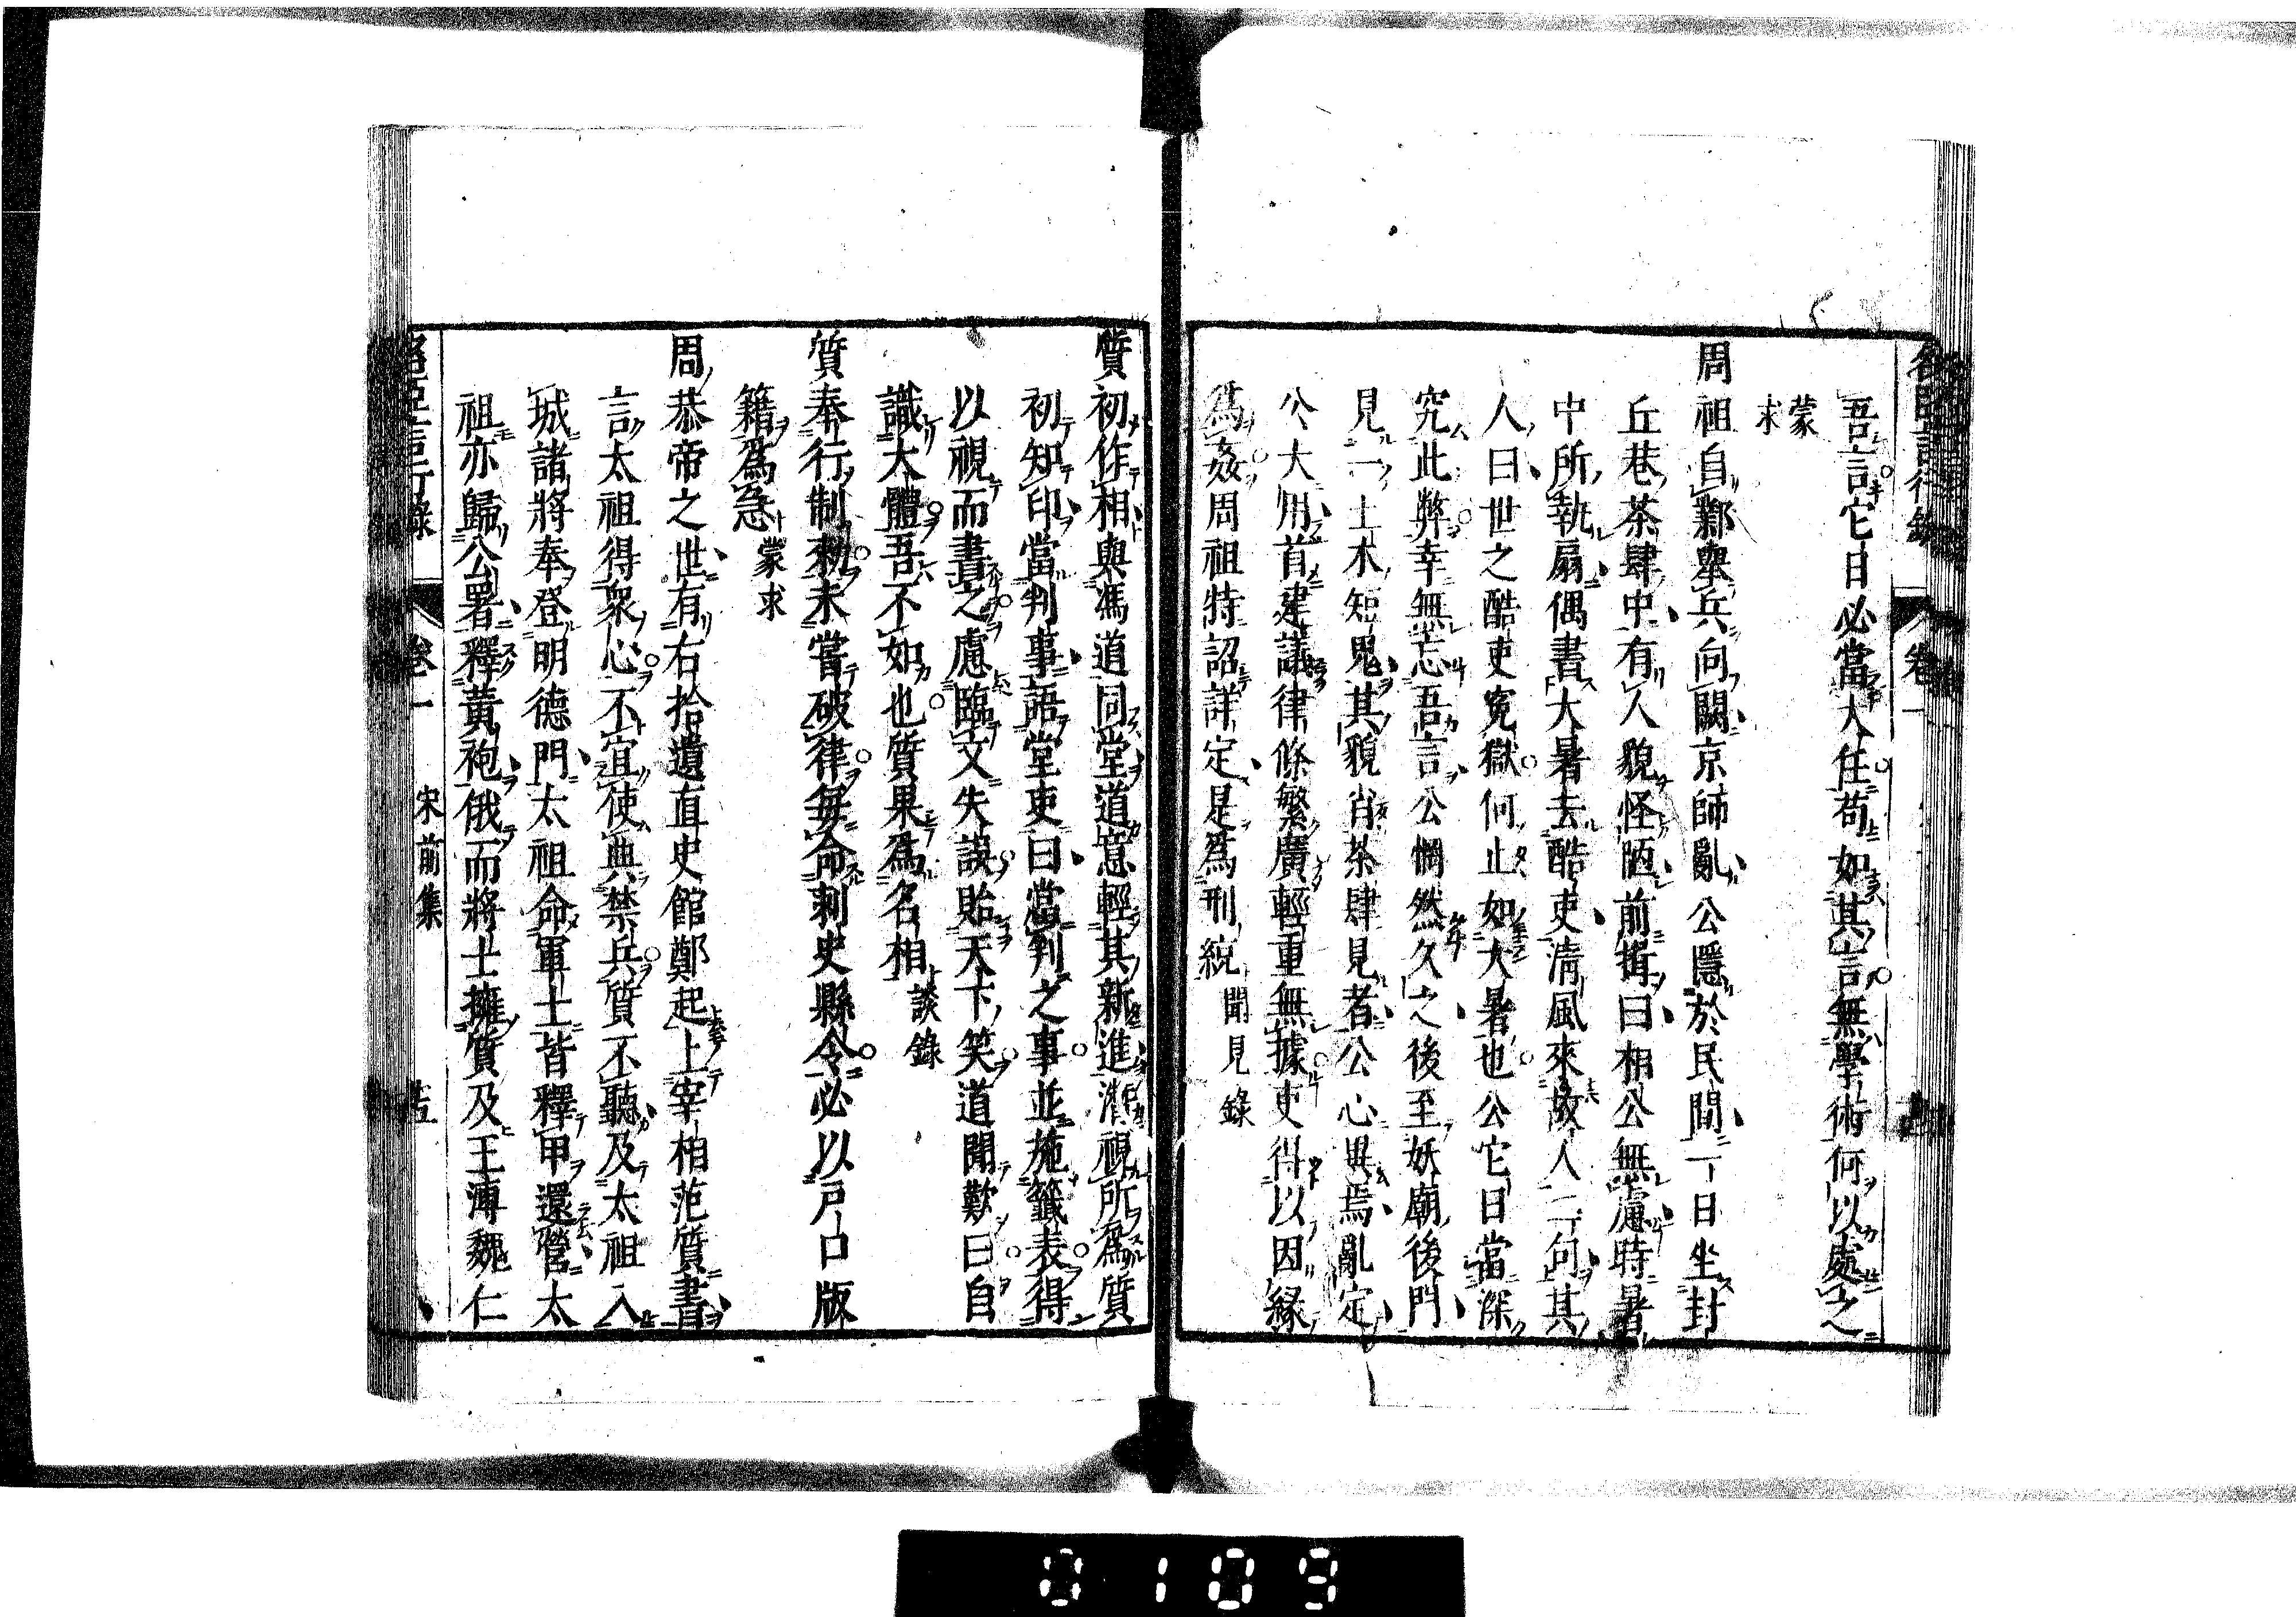 名臣言行錄 卷一
吾言它日必當大任苟如其言無學術何以處之
蒙求
周祖自鄴舉兵向闕京師亂公隱於民間一日坐封
丘巷茶肆中有人貌怪陋前揖曰相公無慮時暑
中所執扇偶書大暑去酷吏清風來故人二句其
人曰世之酷吏寃獄何止如大暑也公它日當深
究此弊幸無忘吾言公惘然久之後至妖廟後門
見一土木短鬼其貌肖茶肆見者公心異焉亂定
公大用首建議律條繁廣輕重無據吏得以因緣
爲姦周祖特詔詳定是爲刑統 聞見錄
質初作相與馮道同堂道意輕其新進潛視所爲質
初知印當判事語堂吏曰當判之事並施籤表得
以視而書之慮臨文失誤貽天下笑道聞歎曰自
識大體吾不如也質果爲名相 談錄
質奉行制勑未嘗破律每命刺史縣令必以戶口版
籍爲急 蒙求
周恭帝之世有右拾遺直史館鄭起上宰相范質書
言太祖得衆心不宜使典禁兵質不聽及太祖入
城諸將奉登明德門太祖命軍士皆釋甲還營太
祖亦歸公署釋黃袍俄而將士擁質及王溥魏仁
名臣言行錄 卷一 宋前集 五